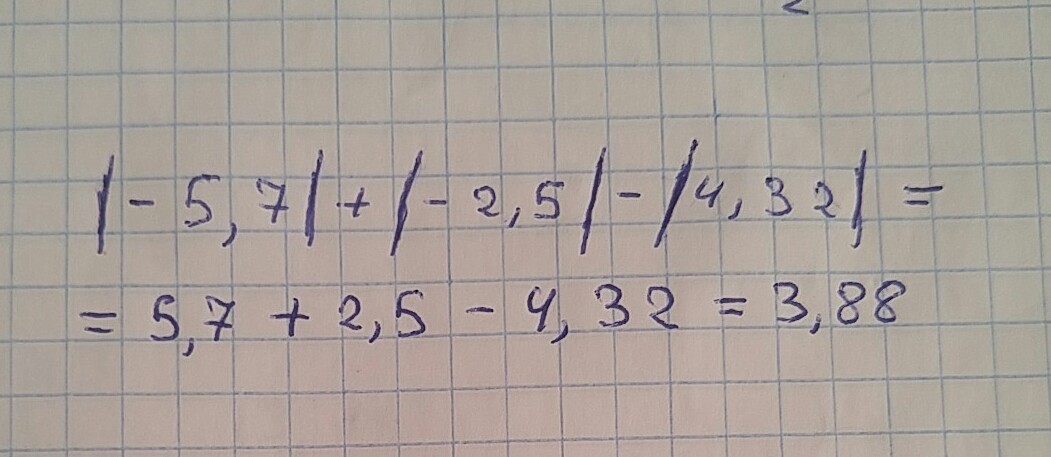 |-5,7|+|-2,5|-|4,32|=
=5,7+2,5-4,32=3,88